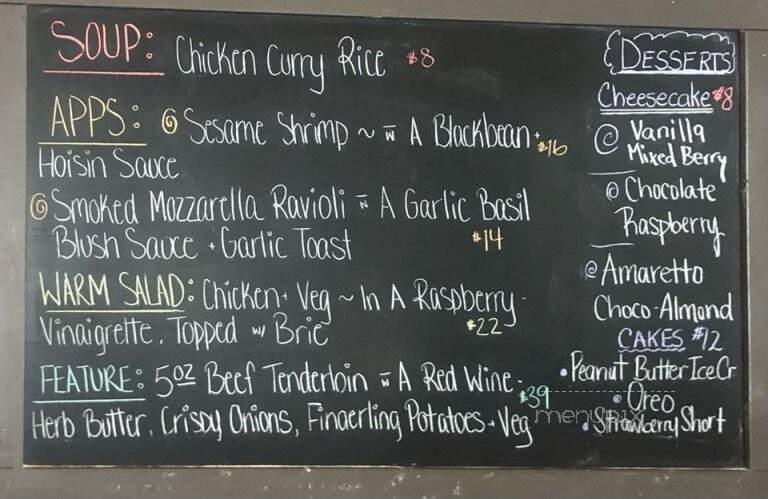 SOUP: Chicken Curry Rice $8
APPS: Sesame Shrimp ~ w A Blackbean + $16
Hoisin Sauce
Smoked Mozzarella Ravioli w A Garlic Basil
Blush Sauce + Garlic Toast $14
WARM SALAD: Chicken + Veg ~ In A Raspberry -
Vinaigrette. Topped w/ Brie $22
FEATURE: 5oz Beef Tenderloin w A Red Wine - $39
Herb Butter. Crispy Onions, Fingerling Potatoes + Veg
DESSERTS
Cheesecake $8
Vanilla
Mixed Berry
Chocolate
Raspberry
Amaretto
Choco-Almond
CAKES $12
• Peanut Butter Ice Cr
• Oreo
• Strawberry Short
menupix